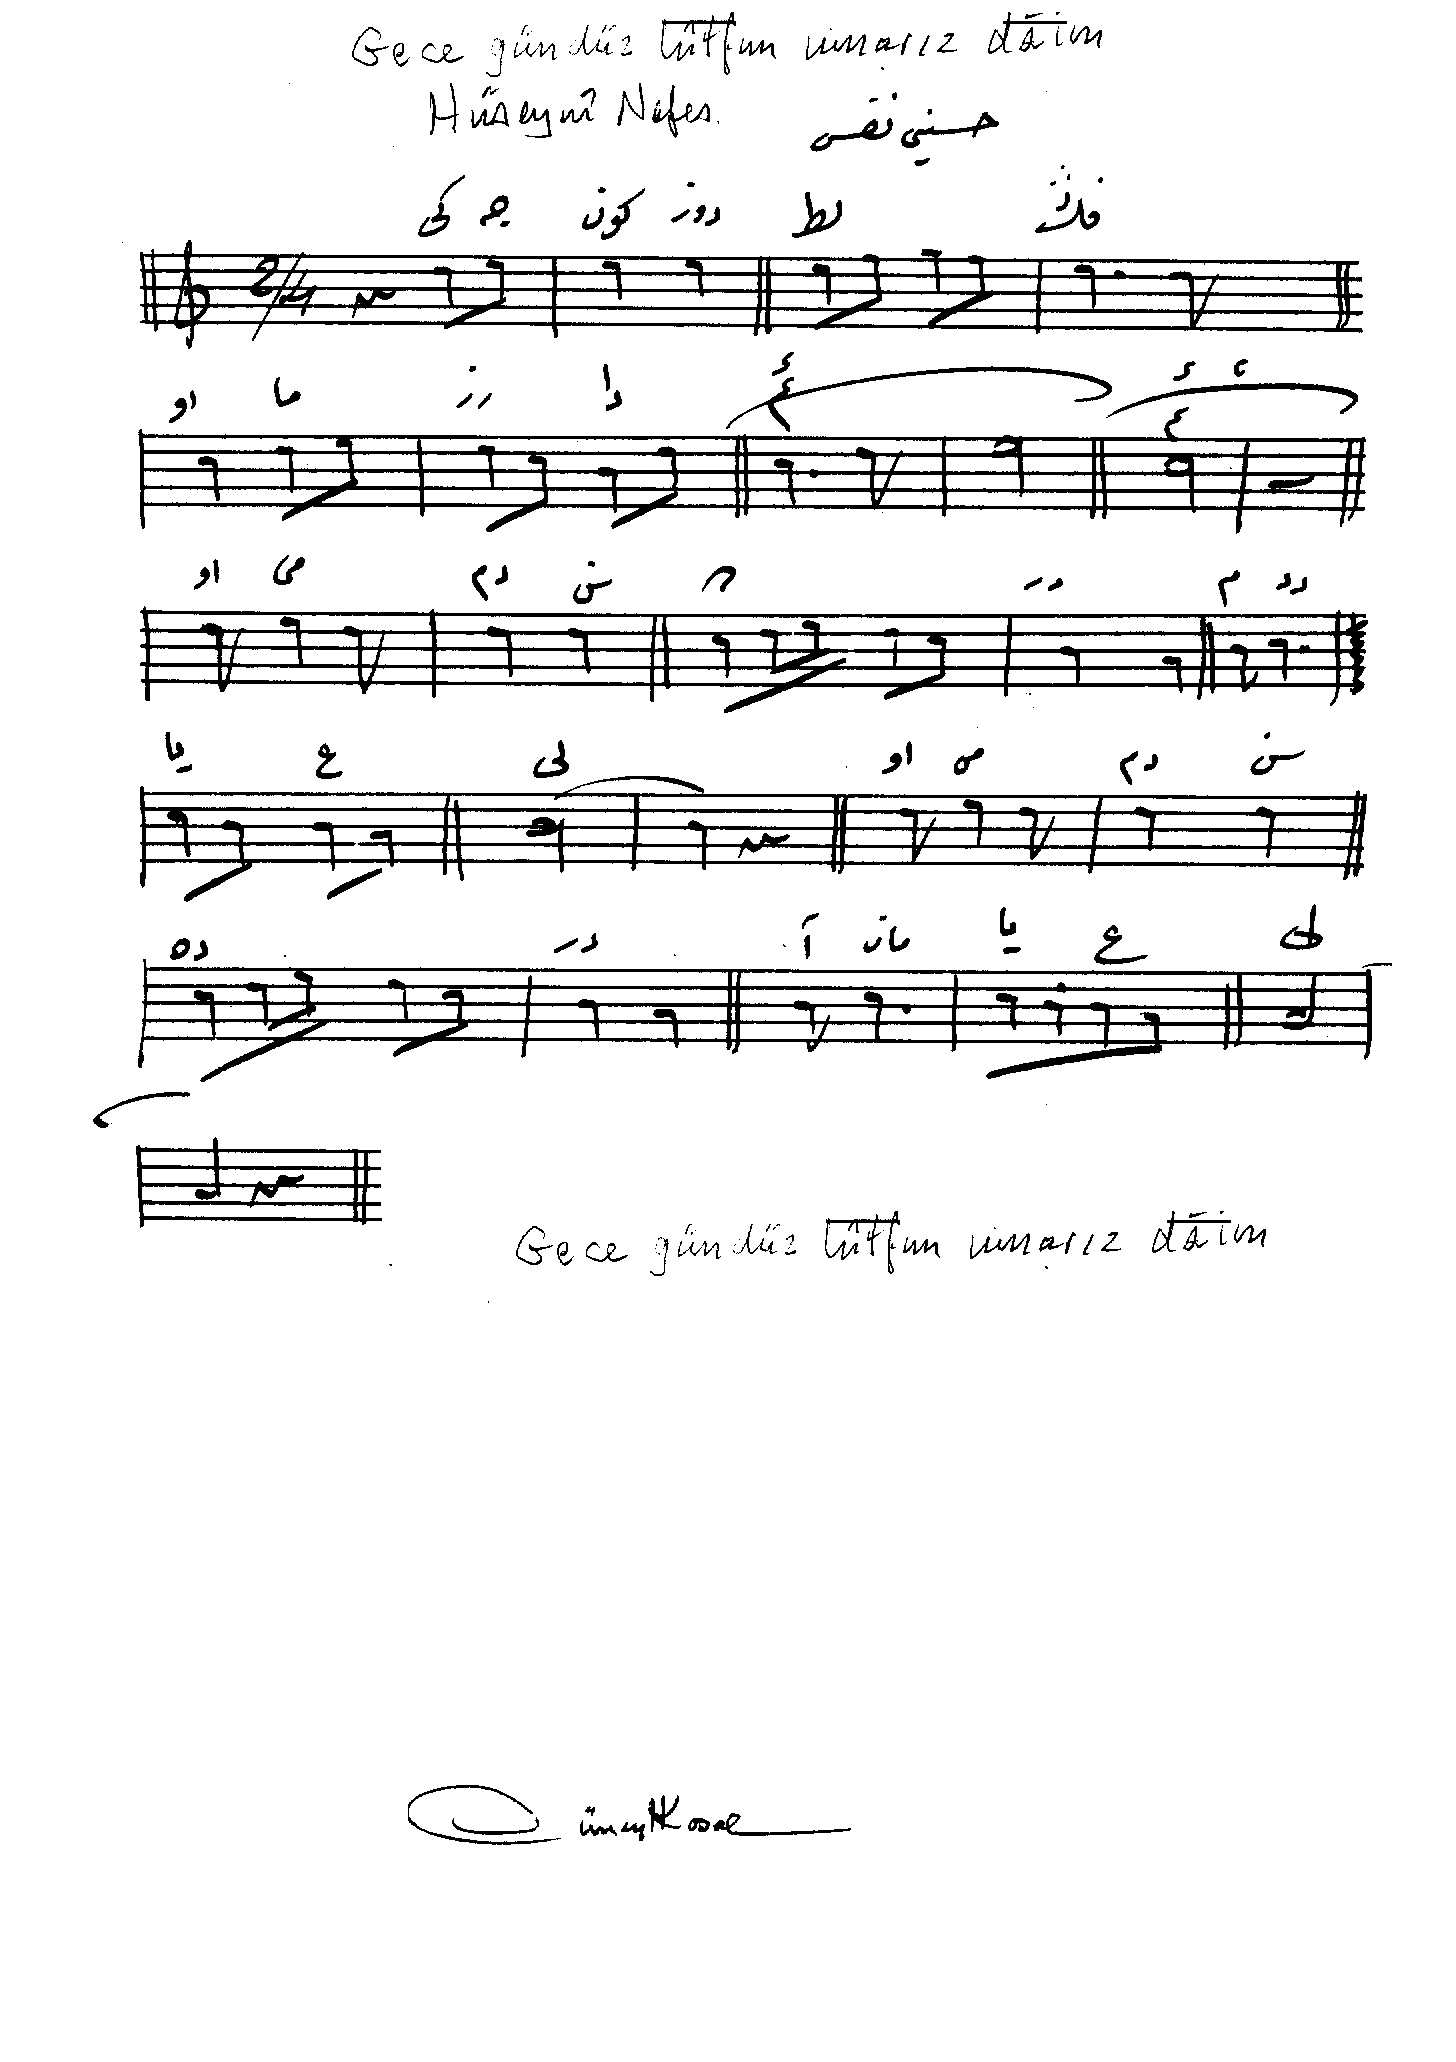 Gece gündüz lûtfun umarız dâim
Hüseynî Nefes.
حسینی نفس
کی جه کون دوز لط فڭ
2/4
او ما رز دا ئ
او می دم سن در م دد
یا ع لی او م دم سن
ده در آ مان یا ع لی
Gece gündüz lûtfun umarız dâim
Cüneyt Kosal